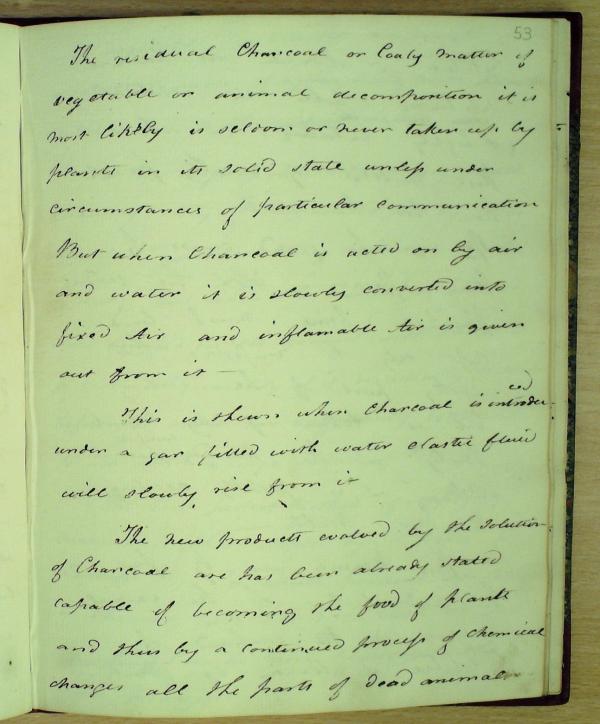 53
The residual Charcoal or Coaly matter of
vegetable or animal decomposition it is
most likely is seldom or never taken up by
plants in its solid state unless under
circumstances of particular communication
But when Charcoal is acted on by air
and water it is slowly converted into
fixed Air and inflamable Air is given
out from it —
This is shewn when Charcoal is introdu-ced
under a jar filled with water elastic fluid
will slowly rise from it
The new products evolved by the solution
of Charcoal are has been already stated
capable of becoming the food of plants
and thus by a continued process of chemical
changes all the parts of dead animals